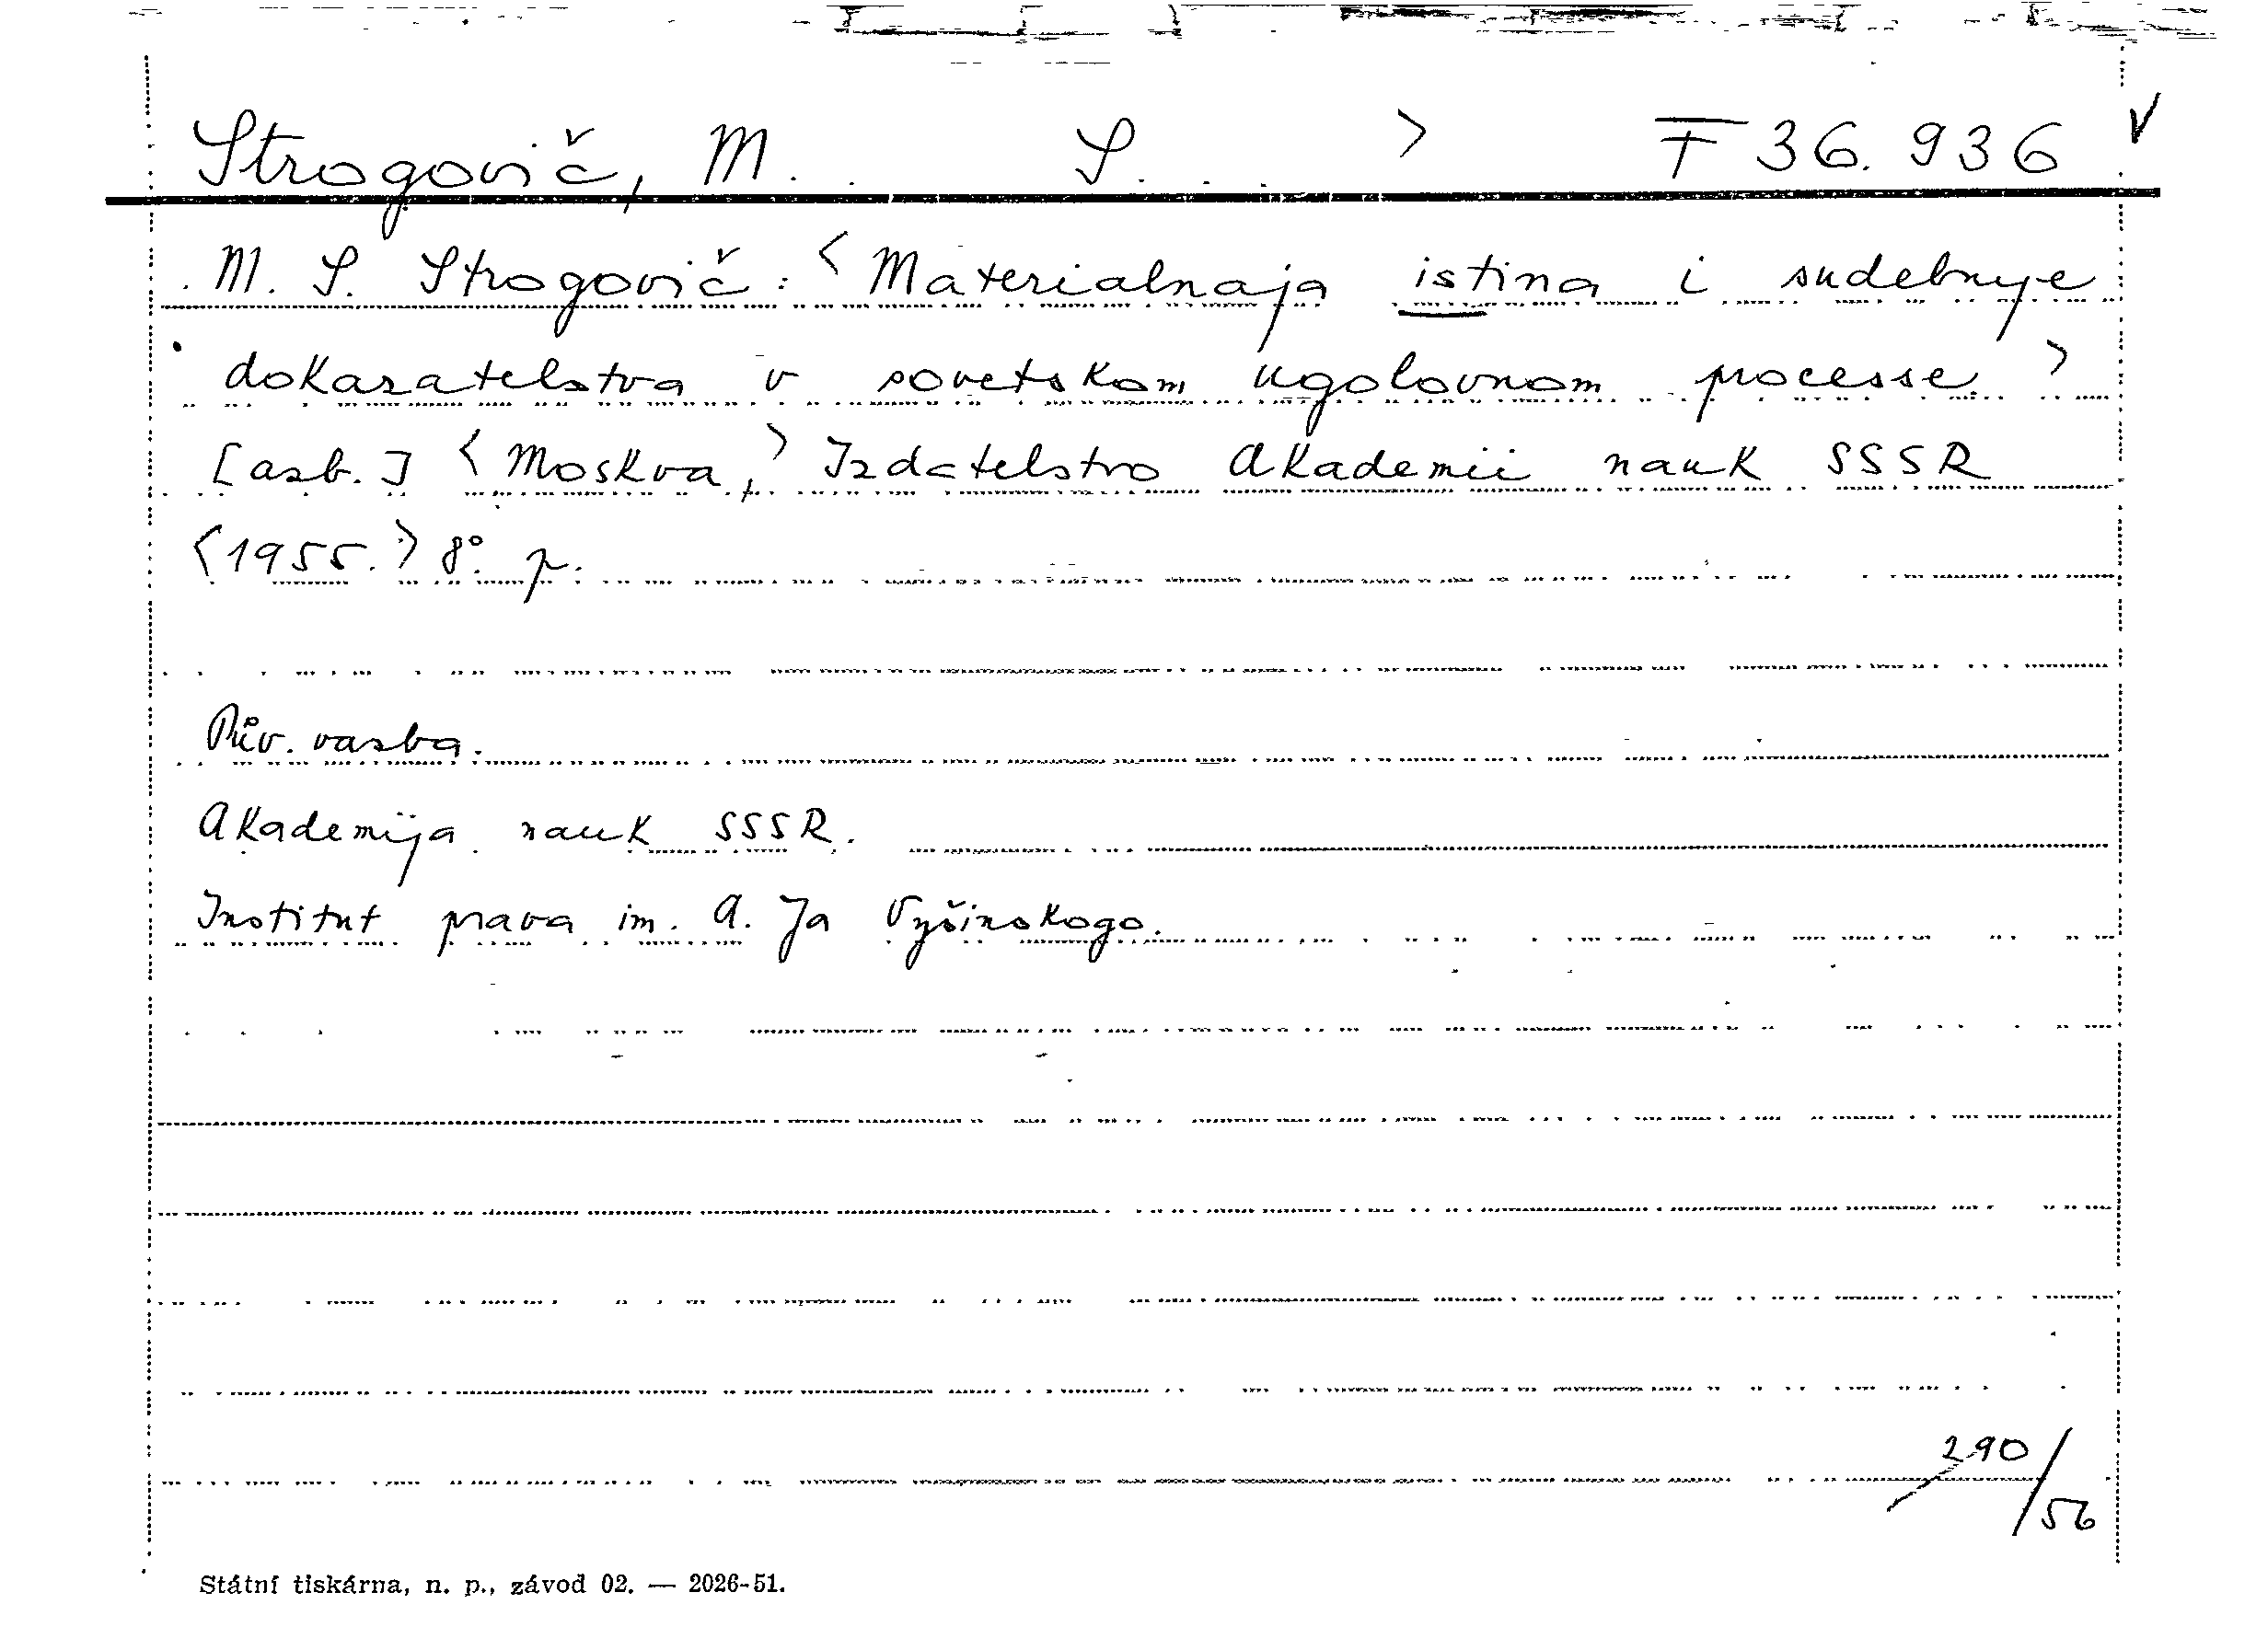 Strogovič, M. S. > F 36.936 v
M. S. Strogovič: <Materialnaja istina i sudebnye
dokazatelstva v sovetskom ugolovnom processe.>
[azb.] <Moskva,> Izdatelstvo Akademii nauk SSSR
<1955.> 8°. p.
Pův. vazba.
Akademija nauk SSSR.
Institut prava im. A. Ja Vyšinskogo.
290/56
Státní tiskárna, n. p., závod 02. — 2026-51.